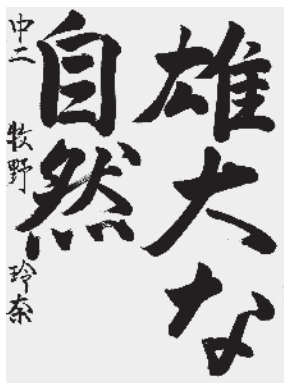 雄大な
自然
中二 牧野 玲奈